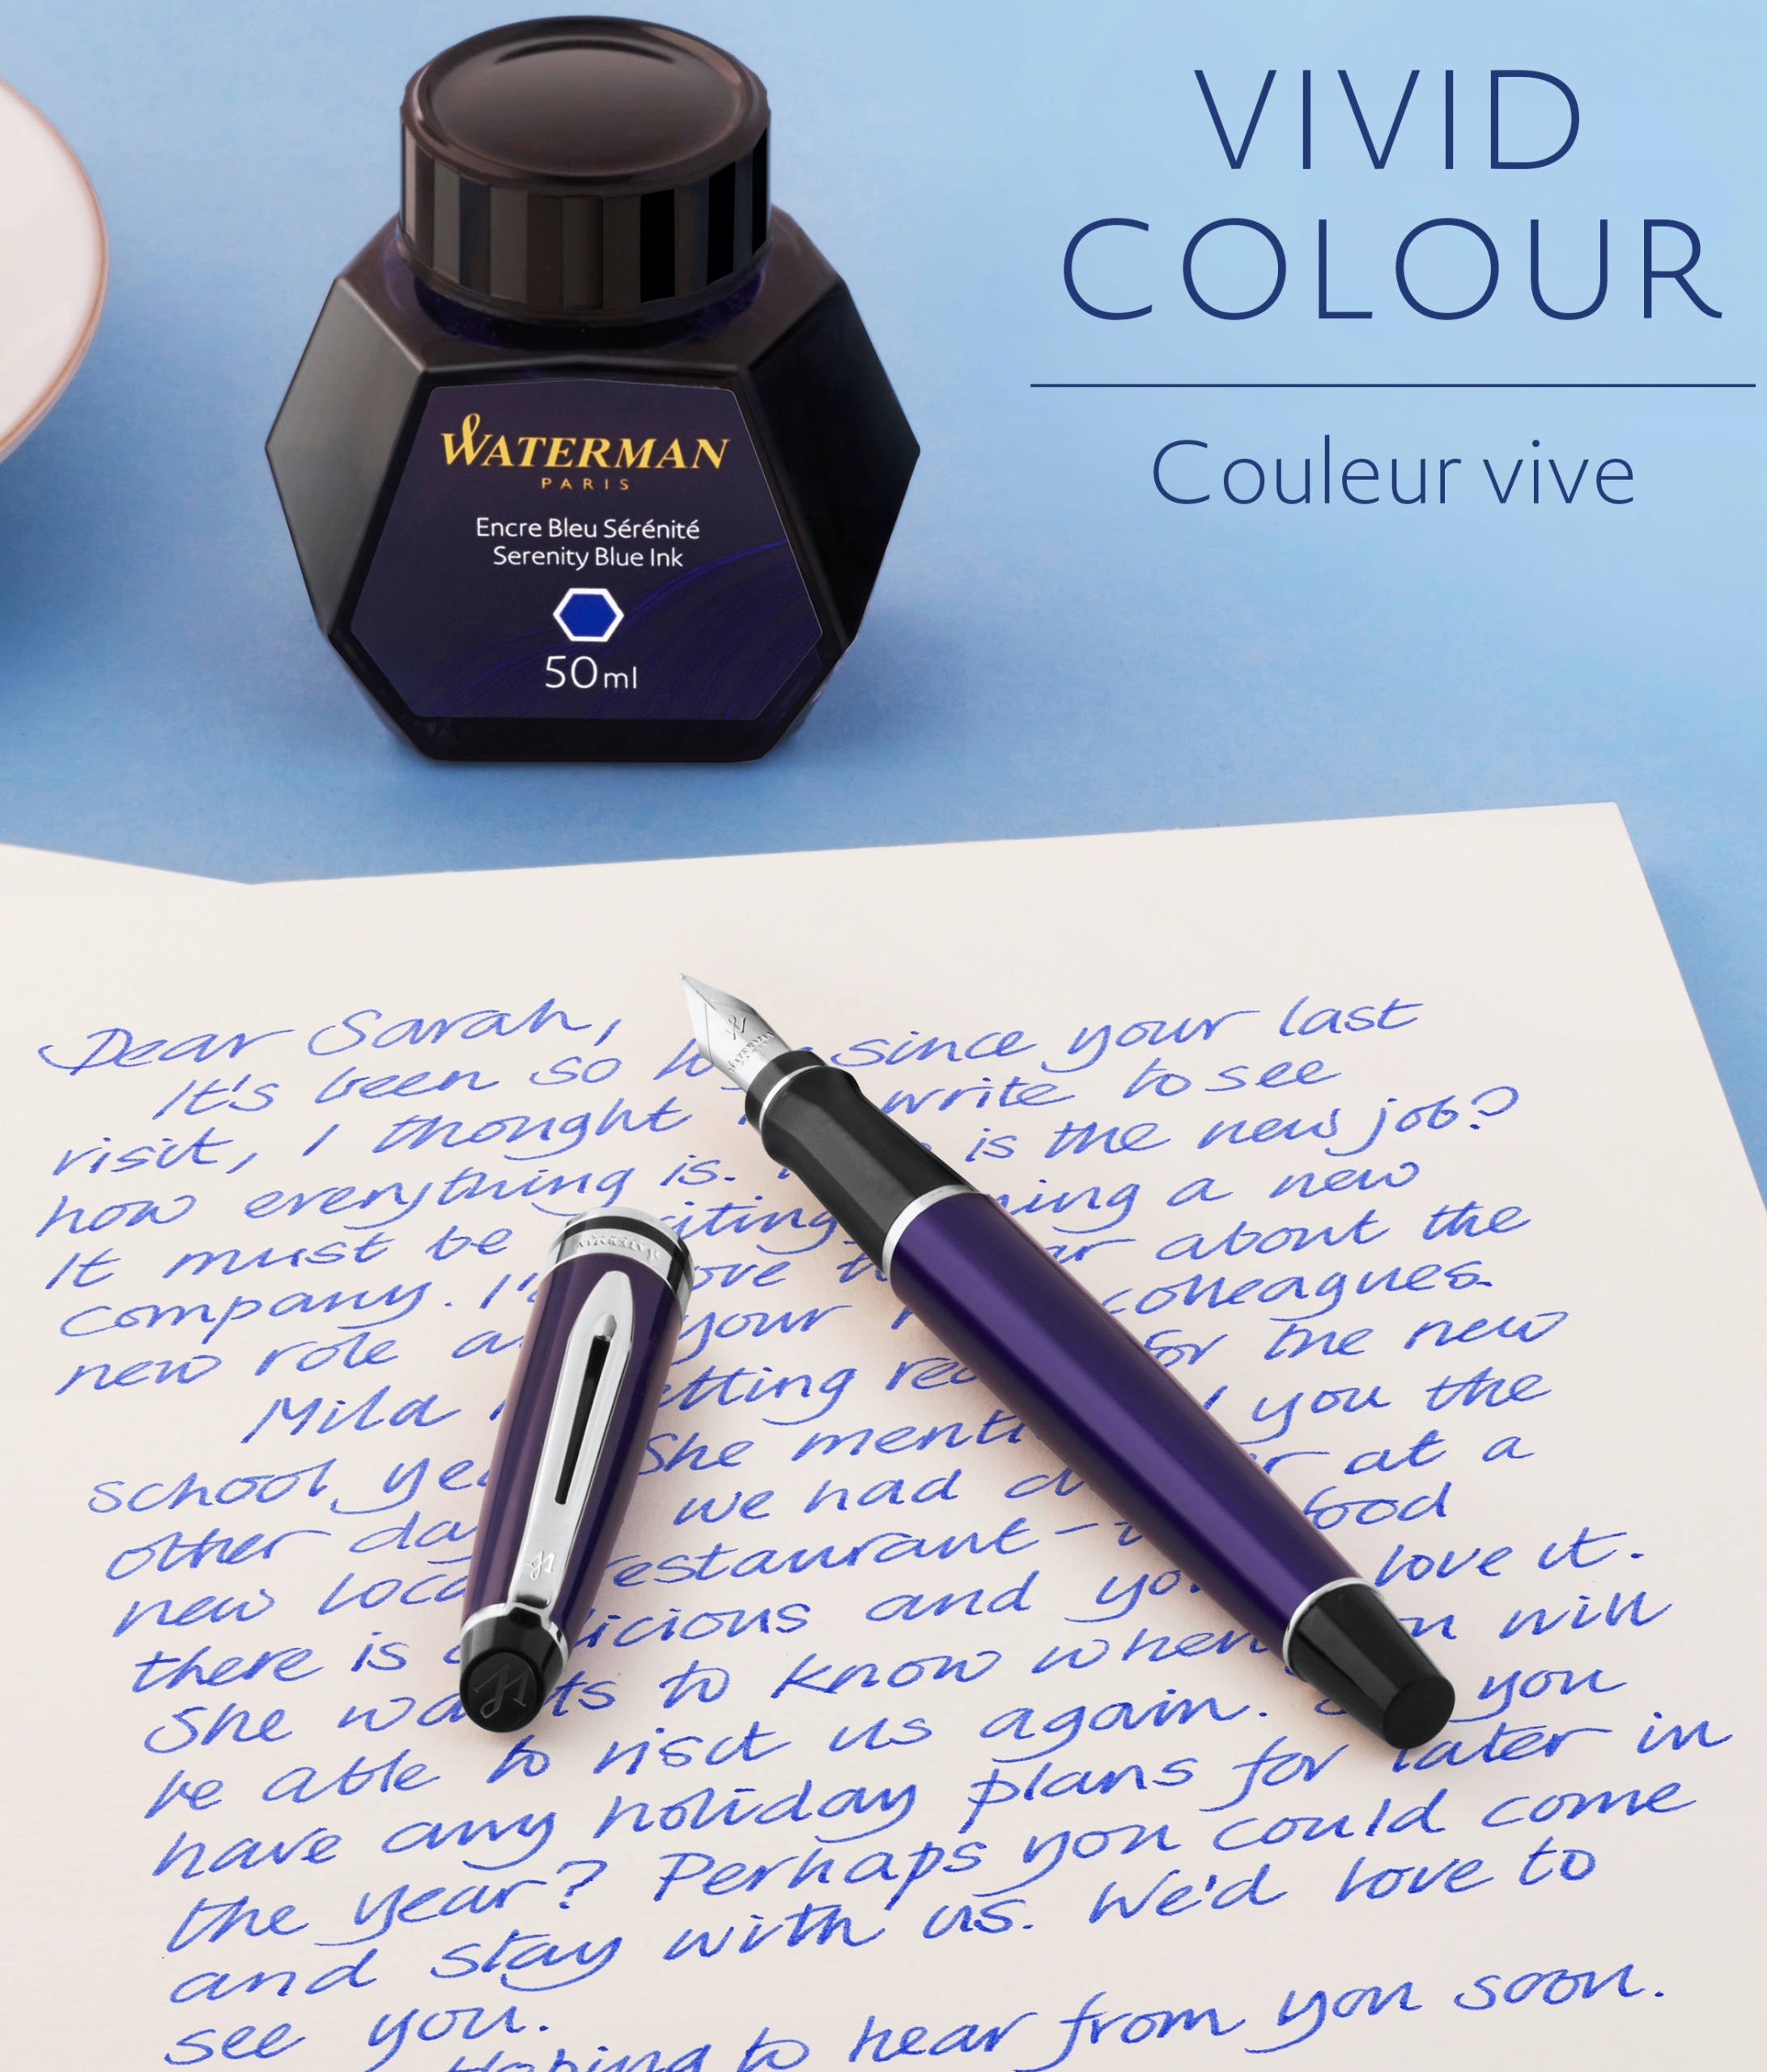 VIVID
COLOUR
Couleur vive
WATERMAN
PARIS
Encre Bleu Sérénité
Serenity Blue Ink
50ml
WATERMAN
Dear Sarah,
It's been so since your last
visit, I thought write to see
how everything is. is the new job?
It must be a new
company. about the
new role your colleagues
Mild for the new
school She you the
other we had at a
new restaurant - food
there is and love it.
She wants to know when will
be able to visit us again. you
have any holiday plans for later in
the year? Perhaps you could come
and stay with us. We'd love to
see you.
Hoping to hear from you soon.